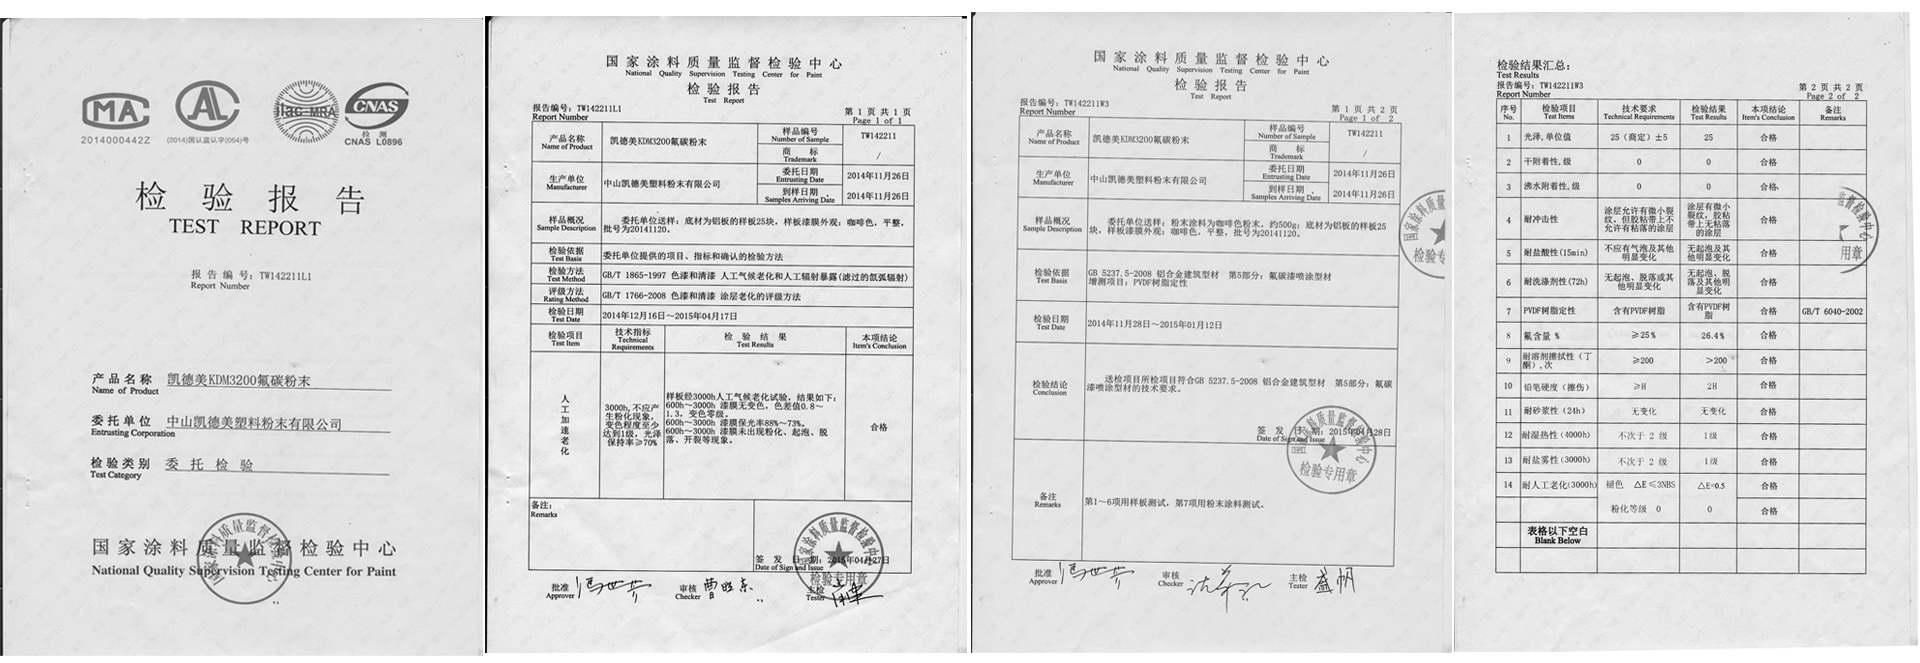 MA
2014000442Z
AL
(2014)国认监认字(054)号
ilac-MRA
CNAS
检 测
CNAS L0896
检 验 报 告
TEST REPORT
报 告 编 号: TW142211L1
Report Number
产品名称 凯德美KDM3200氟碳粉末
Name of Product
委托单位 中山凯德美塑料粉末有限公司
Entrusting Corporation
检验类别 委 托 检 验
Test Category
国家涂料质量监督检验中心
National Quality Supervision Testing Center for Paint
国家涂料质量监督检验中心
National Quality Supervision Testing Center for Paint
检验报告
Test Report
报告编号: TW142211L1 第 1 页 共 1 页
Report Number Page 1 of 1
产品名称 凯德美KDM3200氟碳粉末 样品编号 TW142211
Name of Product Number of Sample
商 标 /
Trademark
生产单位 中山凯德美塑料粉末有限公司 委托日期 2014年11月26日
Manufacturer Entrusting Date
到样日期 2014年11月26日
Samples Arriving Date
样品概况 委托单位送样;底材为铝板的样板25块,样板漆膜外观:咖啡色,平整,
Sample Description 批号为20141120。
检验依据 委托单位提供的项目、指标和确认的检验方法
Test Basis
检验方法 GB/T 1865-1997 色漆和清漆 人工气候老化和人工辐射暴露(滤过的氙弧辐射)
Test Method
评级方法 GB/T 1766-2008 色漆和清漆 涂层老化的评级方法
Rating Method
检验日期 2014年12月16日～2015年04月17日
Test Date
检验项目 技术指标 检 验 结 果 本项结论
Test Item Technical Requirements Test Results Item's Conclusion
人工加速老化
3000h,不应产
生粉化现象,
变色程度至少
达到1级,光泽
保持率≥70%
样板经3000h人工气候老化试验,结果如下:
600h～3000h 漆膜无变色,色差值0.8～
1.3,变色零级。
600h～3000h 漆膜保光率88%～73%。
600h～3000h 漆膜未出现粉化、起泡、脱
落、开裂等现象。
合格
备注:
Remarks
签 发 日 期: 2015年04月27日
Date of Sign and Issue
检验专用章
批准 冯世芳 审核 曹晓东 主检
Approver Checker Tester
国家涂料质量监督检验中心
National Quality Supervision Testing Center for Paint
检验报告
Test Report
报告编号: TW142211W3 第 1 页 共 2 页
Report Number Page 1 of 2
产品名称 凯德美KDM3200氟碳粉末 样品编号 TW142211
Name of Product Number of Sample
商 标 /
Trademark
生产单位 中山凯德美塑料粉末有限公司 委托日期 2014年11月26日
Manufacturer Entrusting Date
到样日期 2014年11月26日
Samples Arriving Date
样品概况 委托单位送样;粉末涂料为咖啡色粉末,约500g;底材为铝板的样板25
Sample Description 块,样板漆膜外观:咖啡色,平整,批号为20141120。
检验依据 GB 5237.5-2008 铝合金建筑型材 第5部分:氟碳漆喷涂型材
Test Basis 增测项目:PVDF树脂定性
检验日期 2014年11月28日～2015年01月12日
Test Date
检验结论 送检项目所检项目符合GB 5237.5-2008 铝合金建筑型材 第5部分:氟碳
Conclusion 漆喷涂型材的技术要求。
签 发 日 期: 2015年04月28日
Date of Sign and Issue
检验专用章
备注 第1～6项用样板测试,第7项用粉末涂料测试。
Remarks
批准 冯世芳 审核 主检 盛帆
Approver Checker Tester
检验结果汇总:
Test Results
报告编号: TW142211W3 第 2 页 共 2 页
Report Number Page 2 of 2
序号 检验项目 技术要求 检验结果 本项结论 备注
No. Test Items Technical Requirements Test Results Item's Conclusion Remarks
1 光泽,单位值 25(商定)±5 25 合格
2 干附着性,级 0 0 合格
3 沸水附着性,级 0 0 合格
4 耐冲击性 涂层允许有微小裂纹,但胶粘带上不允许有粘落的涂层 涂层有微小裂纹,胶粘带上无粘落的涂层 合格
5 耐盐酸性(15min) 不应有气泡及其他明显变化 无起泡及其他明显变化 合格
6 耐洗涤剂性(72h) 无起泡、脱落或其他明显变化 无起泡、脱落及其他明显变化 合格
7 PVDF树脂定性 含有PVDF树脂 含有PVDF树脂 合格 GB/T 6040-2002
8 氟含量 % ≥25% 26.4% 合格
9 耐溶剂擦拭性(丁酮),次 ≥200 >200 合格
10 铅笔硬度(擦伤) ≥H 2H 合格
11 耐砂浆性(24h) 无变化 无变化 合格
12 耐湿热性(4000h) 不次于 2 级 1级 合格
13 耐盐雾性(3000h) 不次于 2 级 1级 合格
14 耐人工老化(3000h) 褪色 △E≤3NBS △E=0.5 合格
粉化等级 0 0 合格
表格以下空白
Blank Below